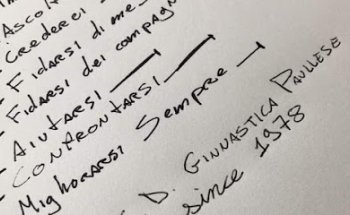 Ascolt
- CREDERCI
- FIDARSI di me
- FIDARSI dei compagn
- AIUTARSI
- CONFRONTARSI
- MIGLIORARSI SEMPRE
D. GINNASTICA PAULLESE
since 1978